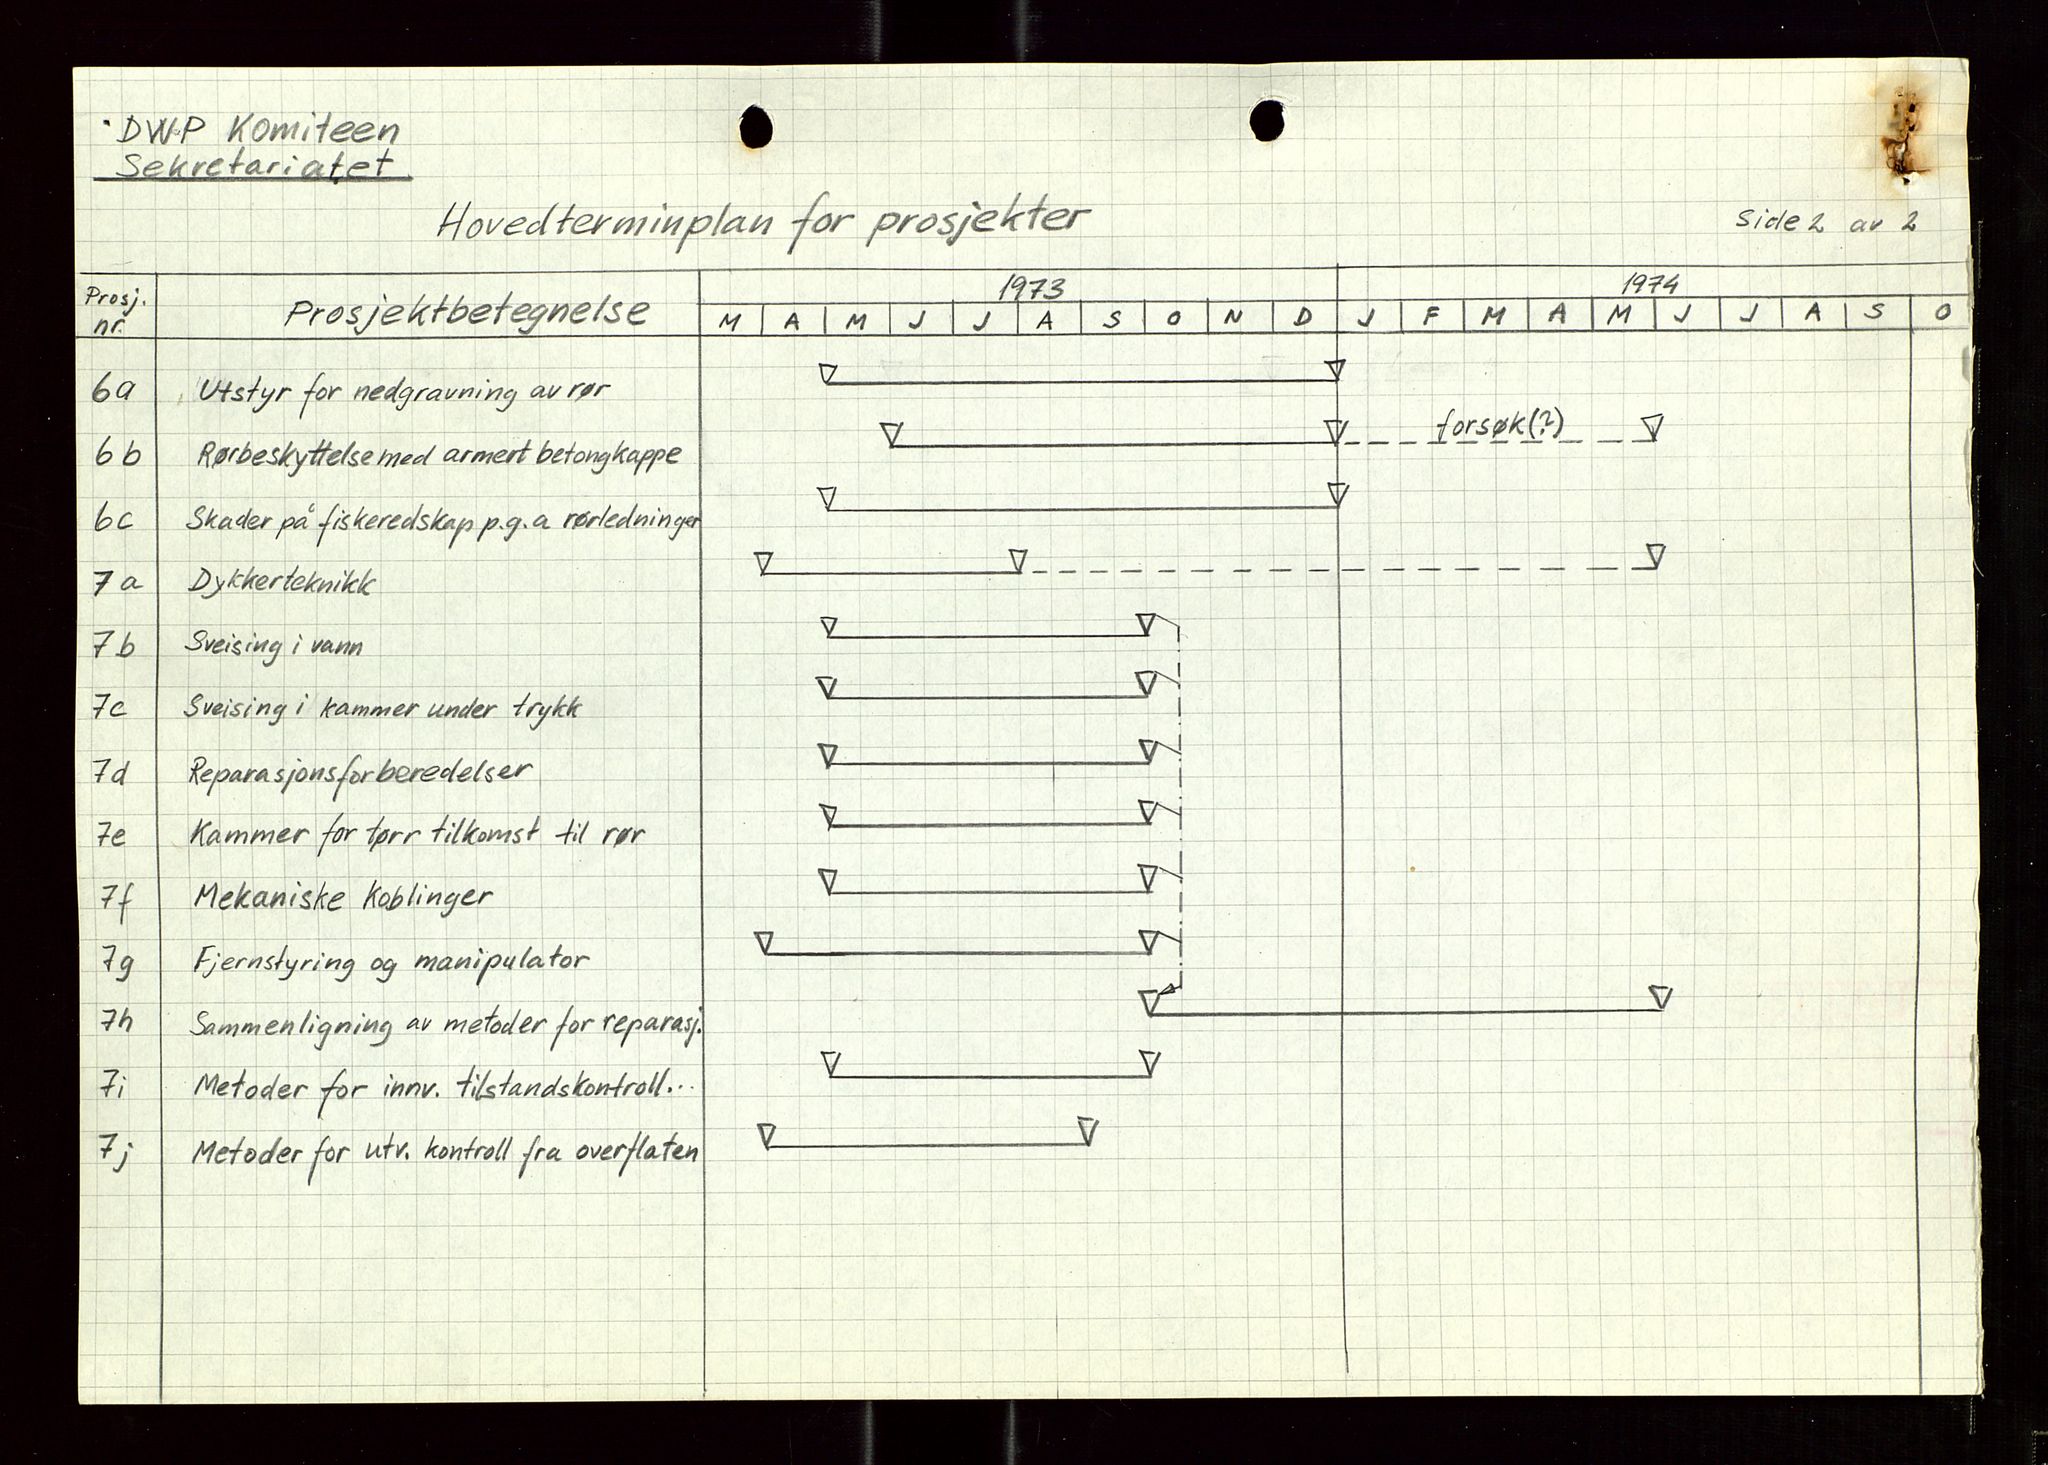 DWP Komiteen
Sekretariatet
Hovedterminplan for prosjekter
Side 2 av 2
Prosj. nr.
Prosjektbetegnelse
1973
1974
M A M J J A S O N D J F M A M J J A S O
6a Utstyr for nedgravning av rør
forsøk(?)
6b Rørbeskyttelse med armert betongkappe
6c Skader på fiskeredskap p.g.a rørledninger
7a Dykkerteknikk
7b Sveising i vann
7c Sveising i kammer under trykk
7d Reparasjonsforberedelser
7e Kammer for tørr tilkomst til rør
7f Mekaniske koblinger
7g Fjernstyring og manipulator
7h Sammenligning av metoder for reparasj.
7i Metoder for innv. tilstandskontroll...
7j Metoder for utv. kontroll fra overflaten